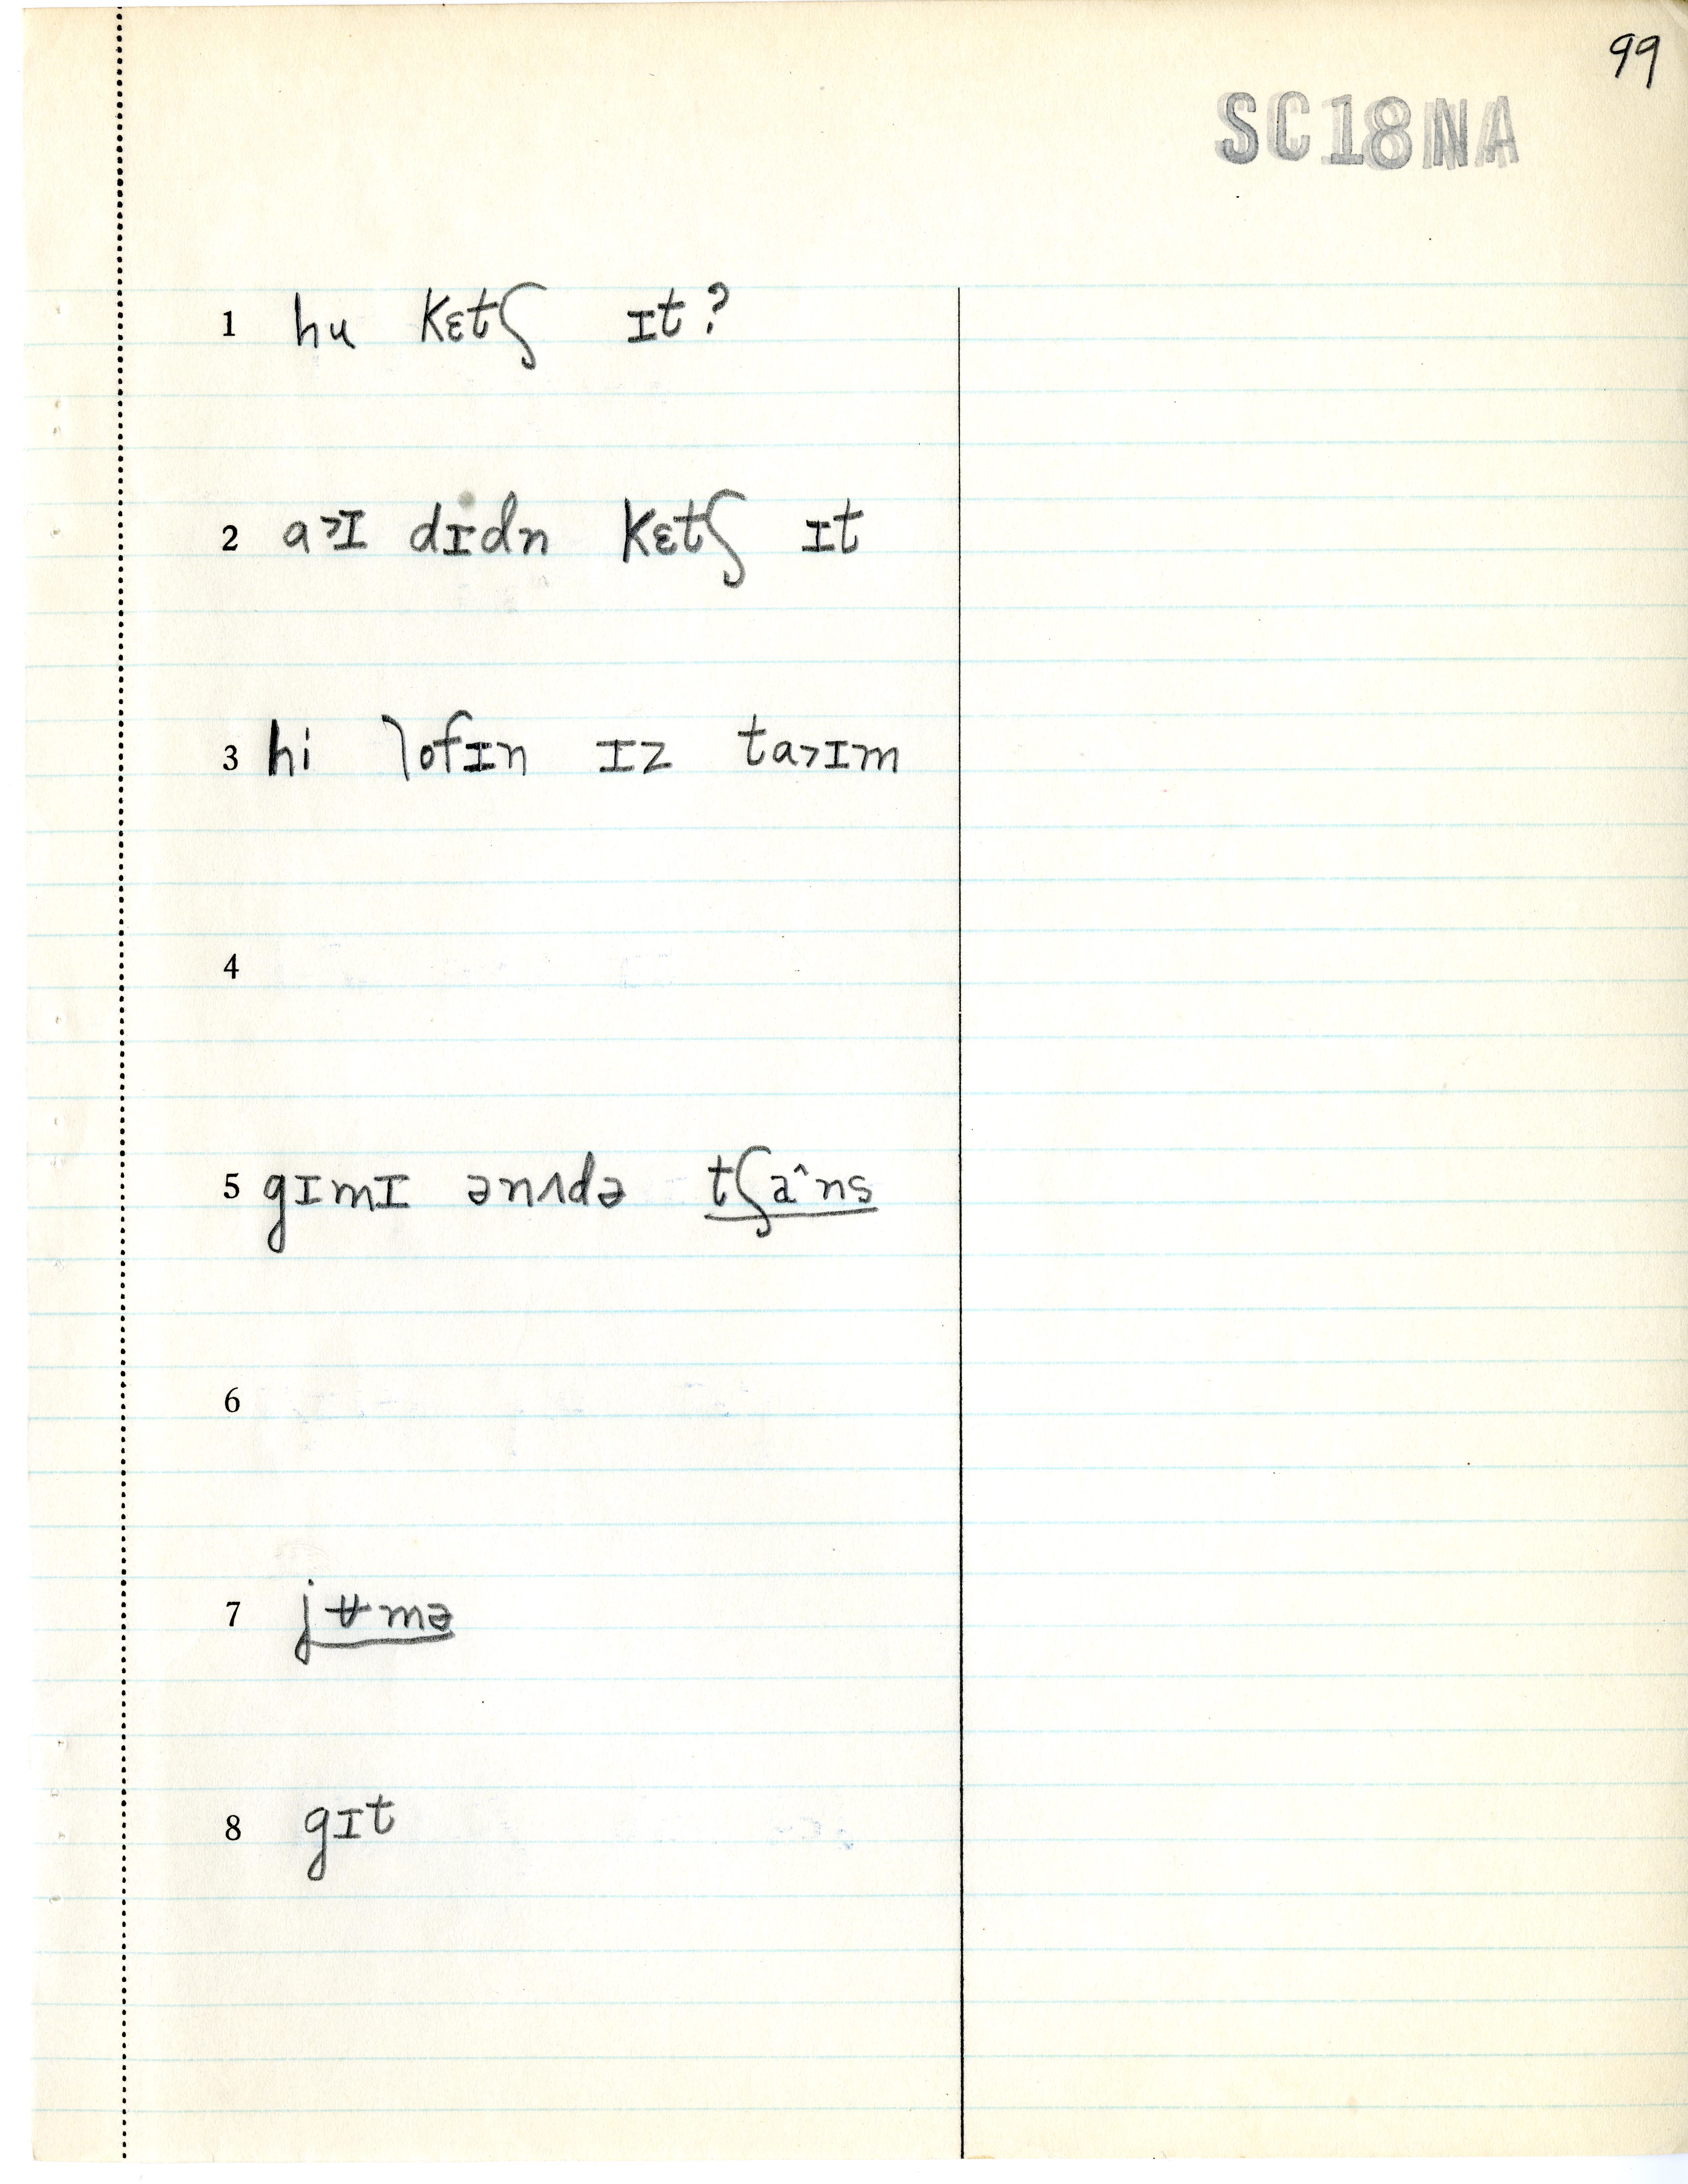 99
SC18NA
1 hu kɛtʃ ɪt?
2 a˃ɪ dɪdn kɛtʃ ɪt
3 hi lofɪn ɪz ta˃ɪm
4
5 gɪmɪ ənʌdə tʃa^ns
6
7 jʉmə
8 gɪt